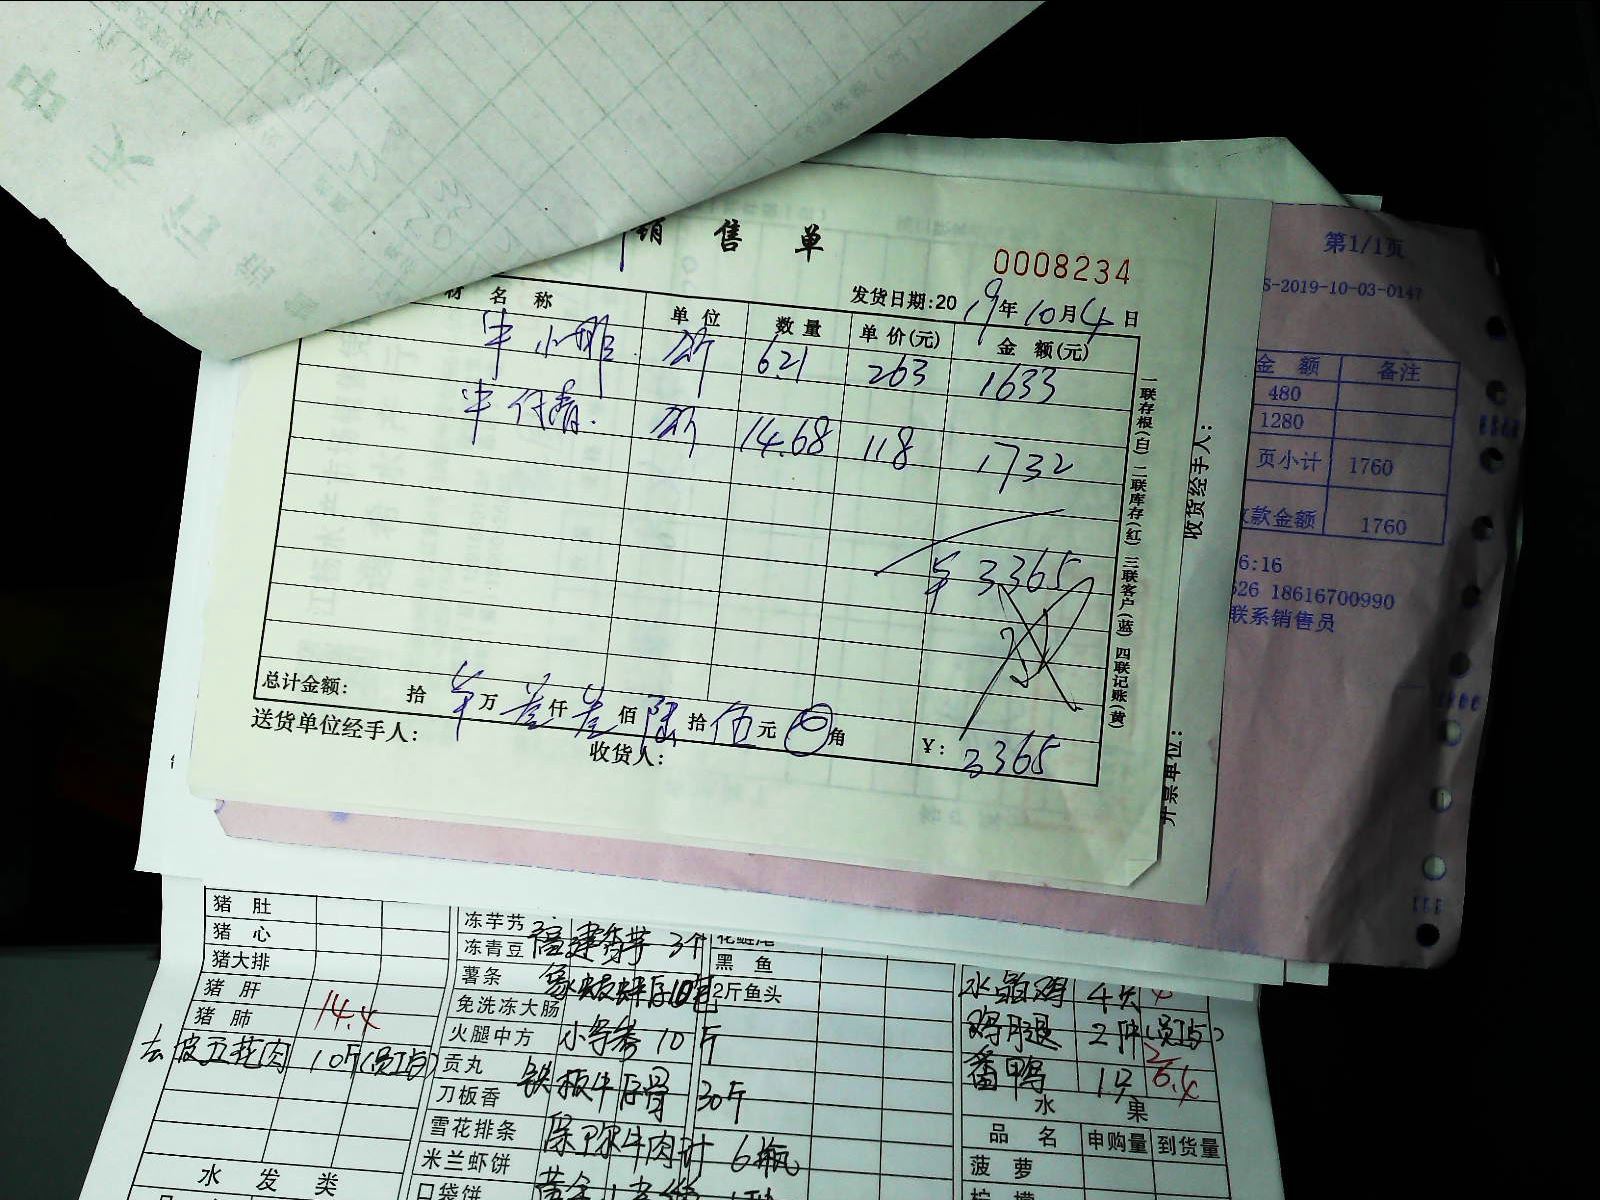 销售单
0008234
发货日期:20 19年10月4日
材名称 单位 数量 单价(元) 金额(元)
牛小排 斤 6.21 263 1633
牛仔骨 斤 14.68 118 1732
¥3365
总计金额: 拾 万 叁仟 叁佰 陆拾 伍元 角 ¥: 3365
送货单位经手人: 收货人:
一联存根(白) 二联库存(红) 三联客户(蓝) 四联记账(黄)
收货经手人:
开票单位:
第1/1页
S-2019-10-03-0147
金额 备注
480
1280
页小计 1760
收款金额 1760
6:16
626 18616700990
联系销售员
猪肚
猪心
猪大排
猪肝
猪肺 14.4
去皮五花肉 10斤(员工)
水发类
冻芋艿
冻青豆 福建香芋 3个
薯条
免洗冻大肠
火腿中方 10斤
贡丸
刀板香 铁板牛仔骨 30斤
雪花排条 保卫尔牛肉汁 6瓶
米兰虾饼
口袋饼
黑鱼
2斤鱼头
水晶鸡 4只
鸡腿 2件(员工)
番鸭 1只 6.4
水果
品名 申购量 到货量
菠萝
柠檬